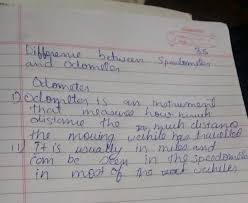 Difference between Speedometer
and Odometer
Odometer
i) Odometer is an instrument
that measure how much
distance the much distance
the moving vehicle has travelled
ii) It is usually in miles and
can be seen in the speedometer
in most of the vehicles